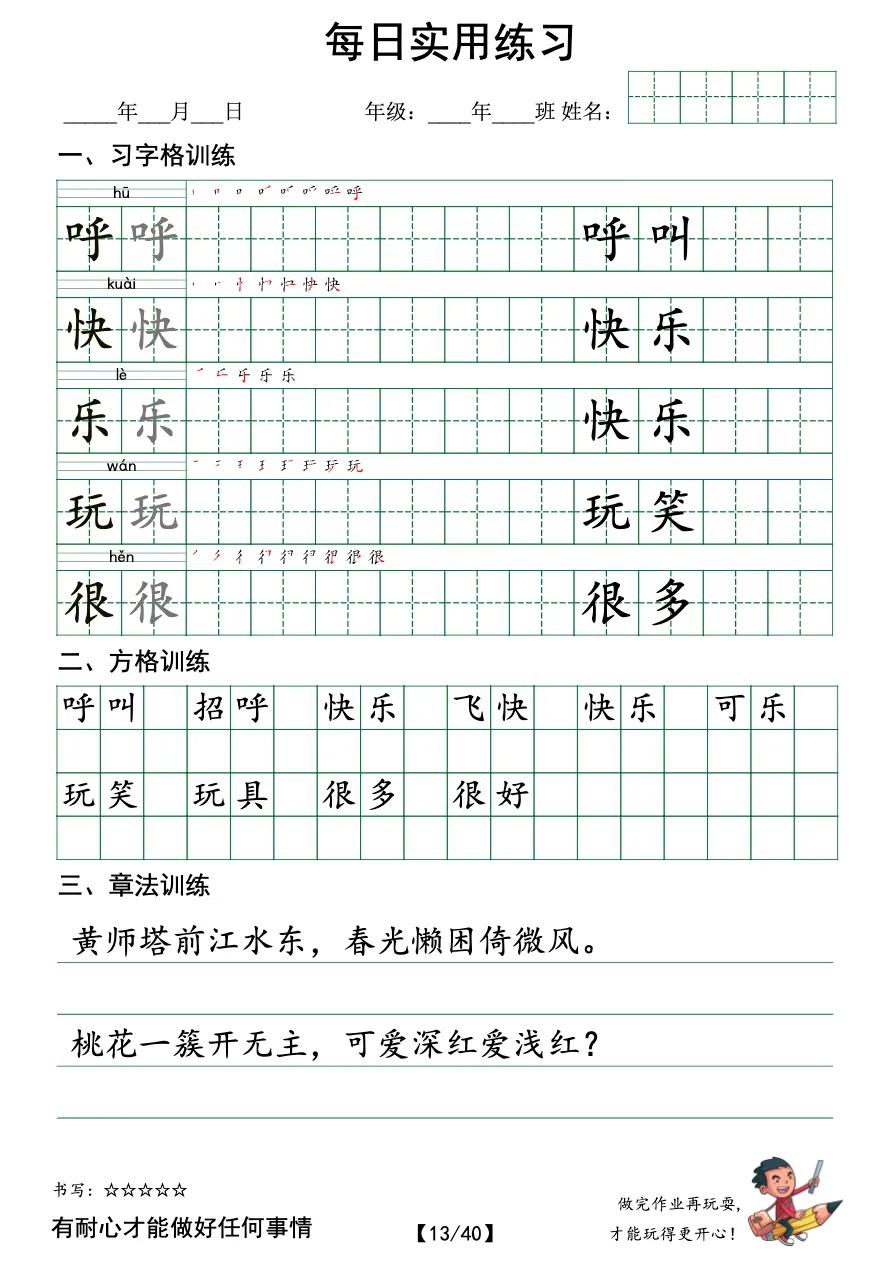 每日实用练习
_____年___月___日 年级：____年____班 姓名：
一、习字格训练
hū
呼 呼 呼 叫
kuài
快 快 快 乐
lè
乐 乐 快 乐
wán
玩 玩 玩 笑
hěn
很 很 很 多
二、方格训练
呼 叫 招 呼 快 乐 飞 快 快 乐 可 乐
玩 笑 玩 具 很 多 很 好
三、章法训练
黄师塔前江水东，春光懒困倚微风。
桃花一簇开无主，可爱深红爱浅红？
书写：☆☆☆☆☆
有耐心才能做好任何事情
【13/40】
做完作业再玩耍，
才能玩得更开心！